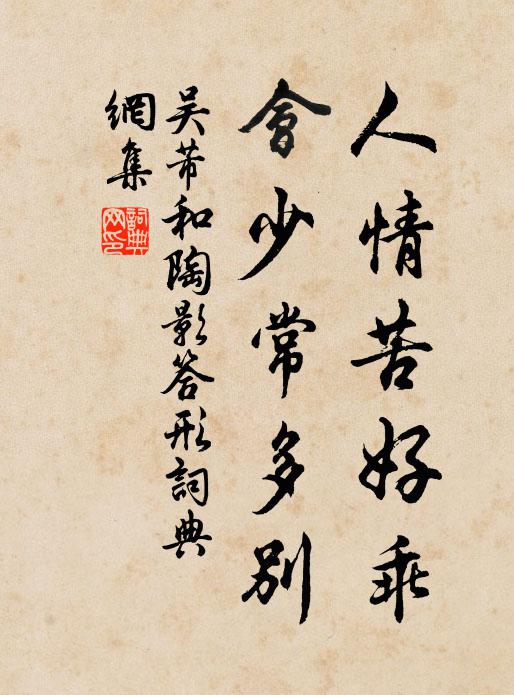 人情苦好乖
會少常多別
吴芾和陶影答形詞典
網集
詞典
网印